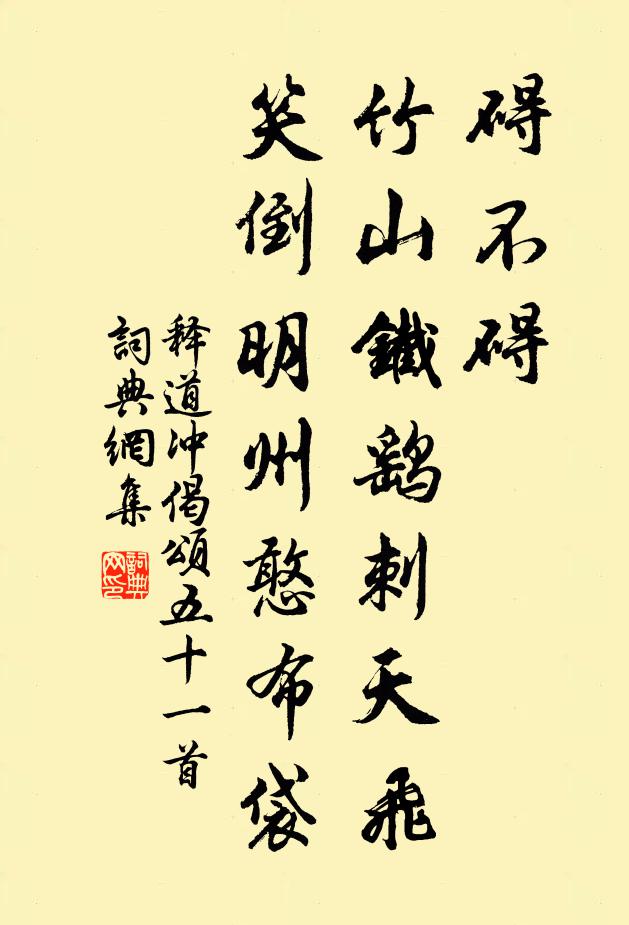 碍不碍
竹山鐵鷂刺天飛
笑倒明州憨布袋
释道冲偈頌五十一首
詞典網集
詞典网印